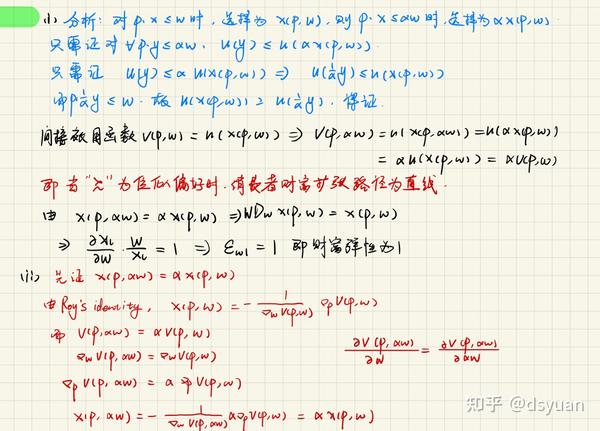 (i) 分析: 对 p·x≤w 时, 选择为 x(p,w), 则 p·x≤αw 时, 选择为 αx(p,w).
只需证对 ∀p·y≤αw, u(y) ≤ u(αx(p,w)).
只需证 u(y)≤α u(x(p,w)) ⇒ u(1/α y)≤u(x(p,w))
而p·1/α y≤w. 故 u(x(p,w)) ≥ u(1/α y). 得证.
间接效用函数 V(p,w) = u(x(p,w)) ⇒ V(p,αw) = u(x(p,αw)) = u(αx(p,w))
= αu(x(p,w)) = αV(p,w)
即当"≿"为位似偏好时, 消费者财富扩张路径为直线.
由 x(p,αw) = αx(p,w) ⇒ WDw x(p,w) = x(p,w)
⇒ ∂xl/∂w · w/xl = 1 ⇒ εwl = 1 即财富弹性为1
(ii) 先证 x(p,αw) = αx(p,w)
由Roy's identity, x(p,w) = - 1/∇wV(p,w) ∇pV(p,w)
而 V(p,αw) = αV(p,w)
∇wV(p,αw) = ∇wV(p,w) ∂V(p,αw)/∂w = ∂V(p,αw)/∂αw
∇pV(p,αw) = α∇pV(p,w)
x(p,αw) = - 1/∇wV(p,αw) α∇pV(p,w) = αx(p,w)
知乎 @dsyuan